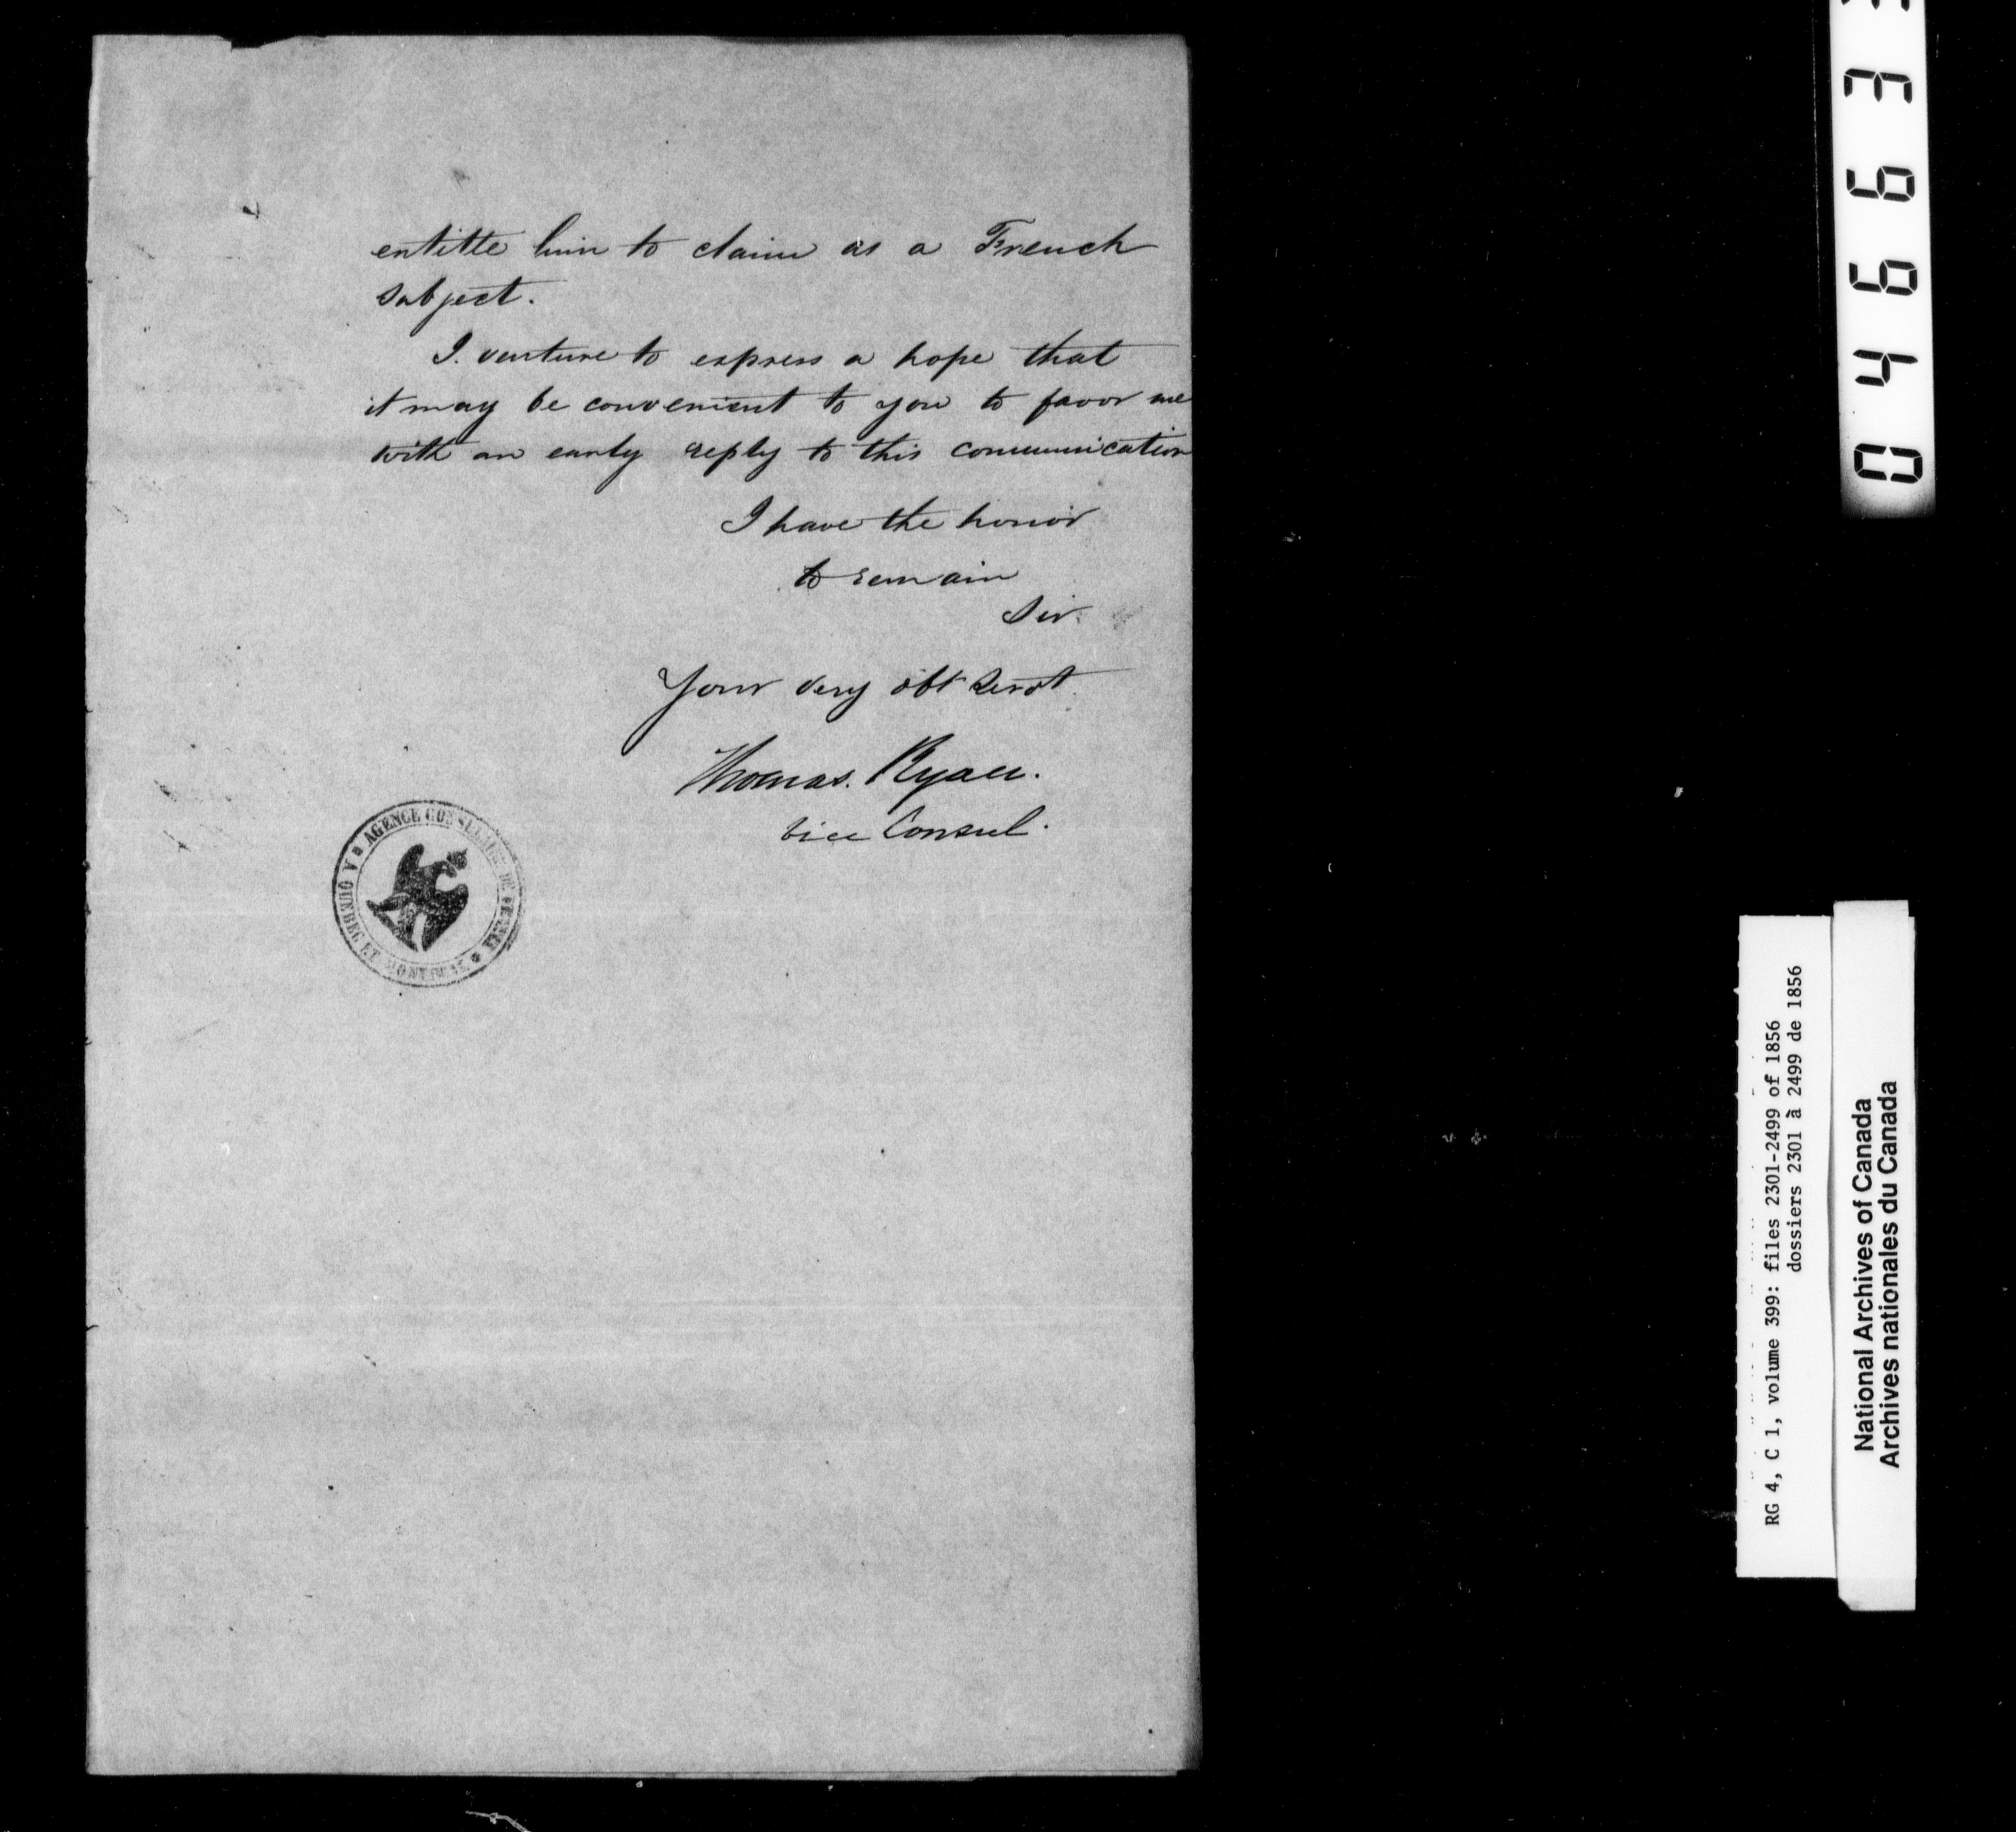 entitle him to claim as a French
subject.
I. venture to express a hope that
it may be convenient to you to favor me
with an early reply to this communication
I have the honor
to remain
Sir.
Your very obt Servt.
Thomas. Ryan.
Vice Consul.
AGENCE CONSULAIRE DE FRANCE
A QUEBEC ET MONTREAL
04663
RG 4, C 1, volume 399: files 2301-2499 of 1856
dossiers 2301 à 2499 de 1856
National Archives of Canada
Archives nationales du Canada